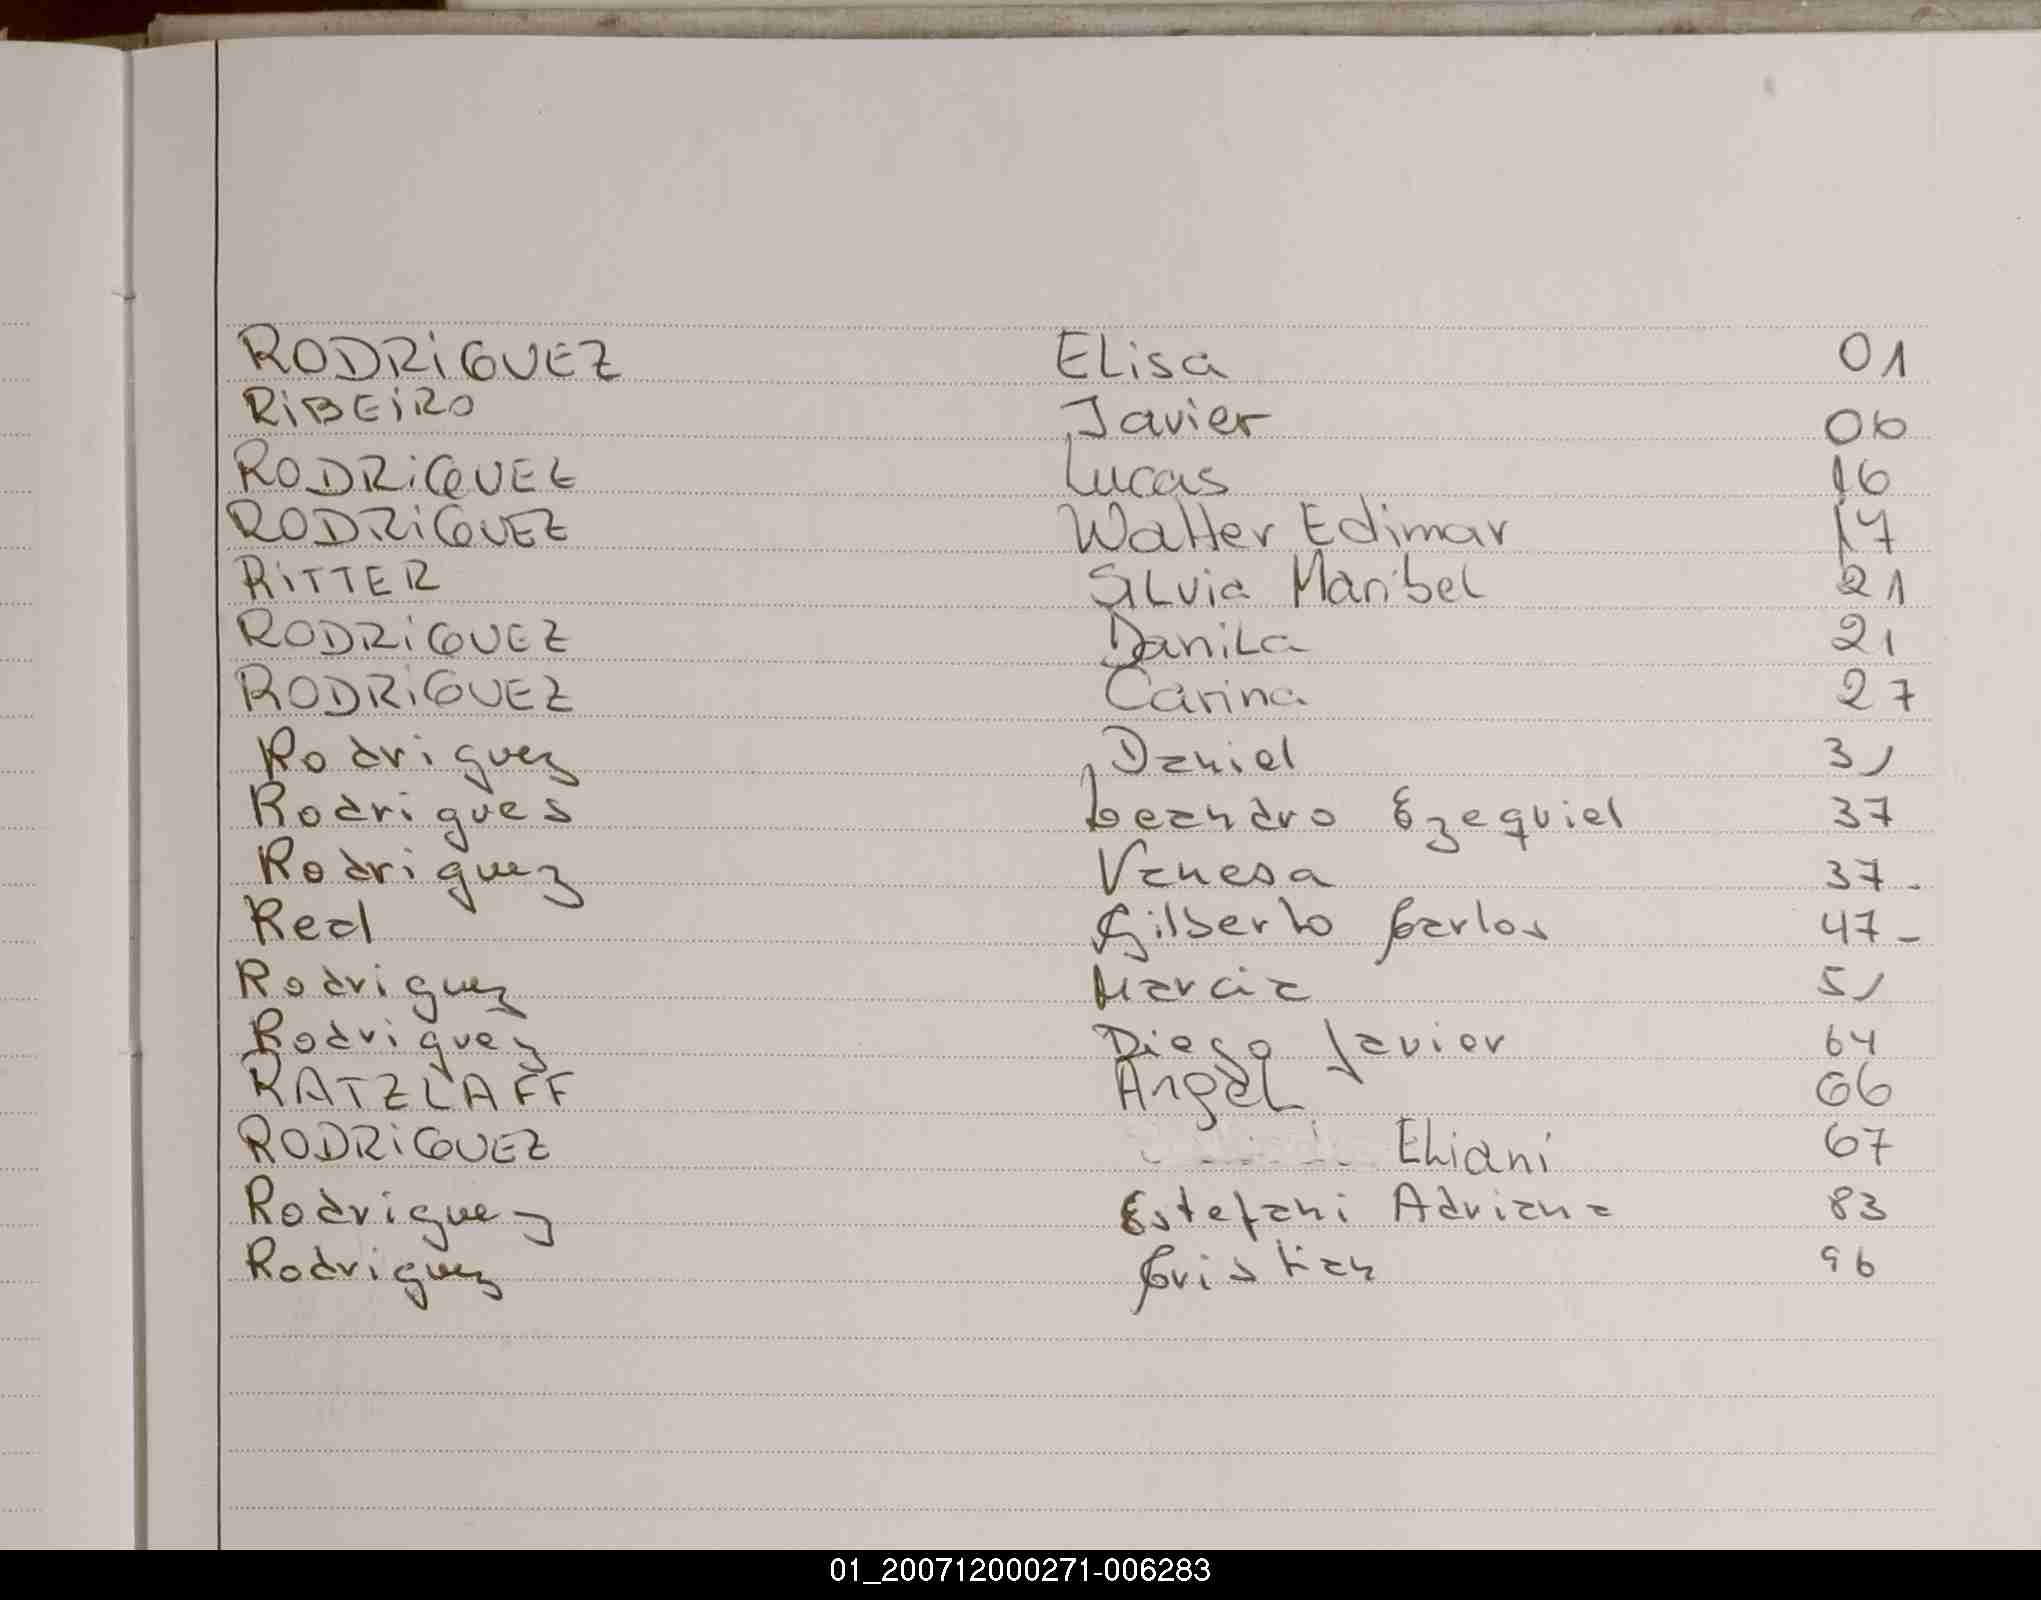 RODRiGUEZ Elisa 01
RiBEiRO Javier 06
RODRiGUEZ Lucas 16
RODRiGUEZ Walter Edimar 17
RiTTER Silvia Maribel 21
RODRiGUEZ Danila 21
RODRiGUEZ Carina 27
Rodriguez Daniel 31
Rodrigues Leandro Ezequiel 37
Rodriguez Vanesa 37-
Real Gilberto Carlos 47-
Rodriguez Marcia 51
Rodriguez Diego Javier 64
RATZLAFF Angel 66
RODRiGUEZ Eliani 67
Rodriguez Estefani Adriana 83
Rodriguez Cristian 96
01_200712000271-006283